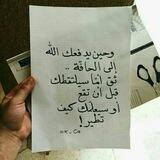 وحين يدفعك الله
إلى الحافّة ..
ثق إمّا سيلتقطك
قبل أن تقع
أو سيعلمك كيف
تطير !